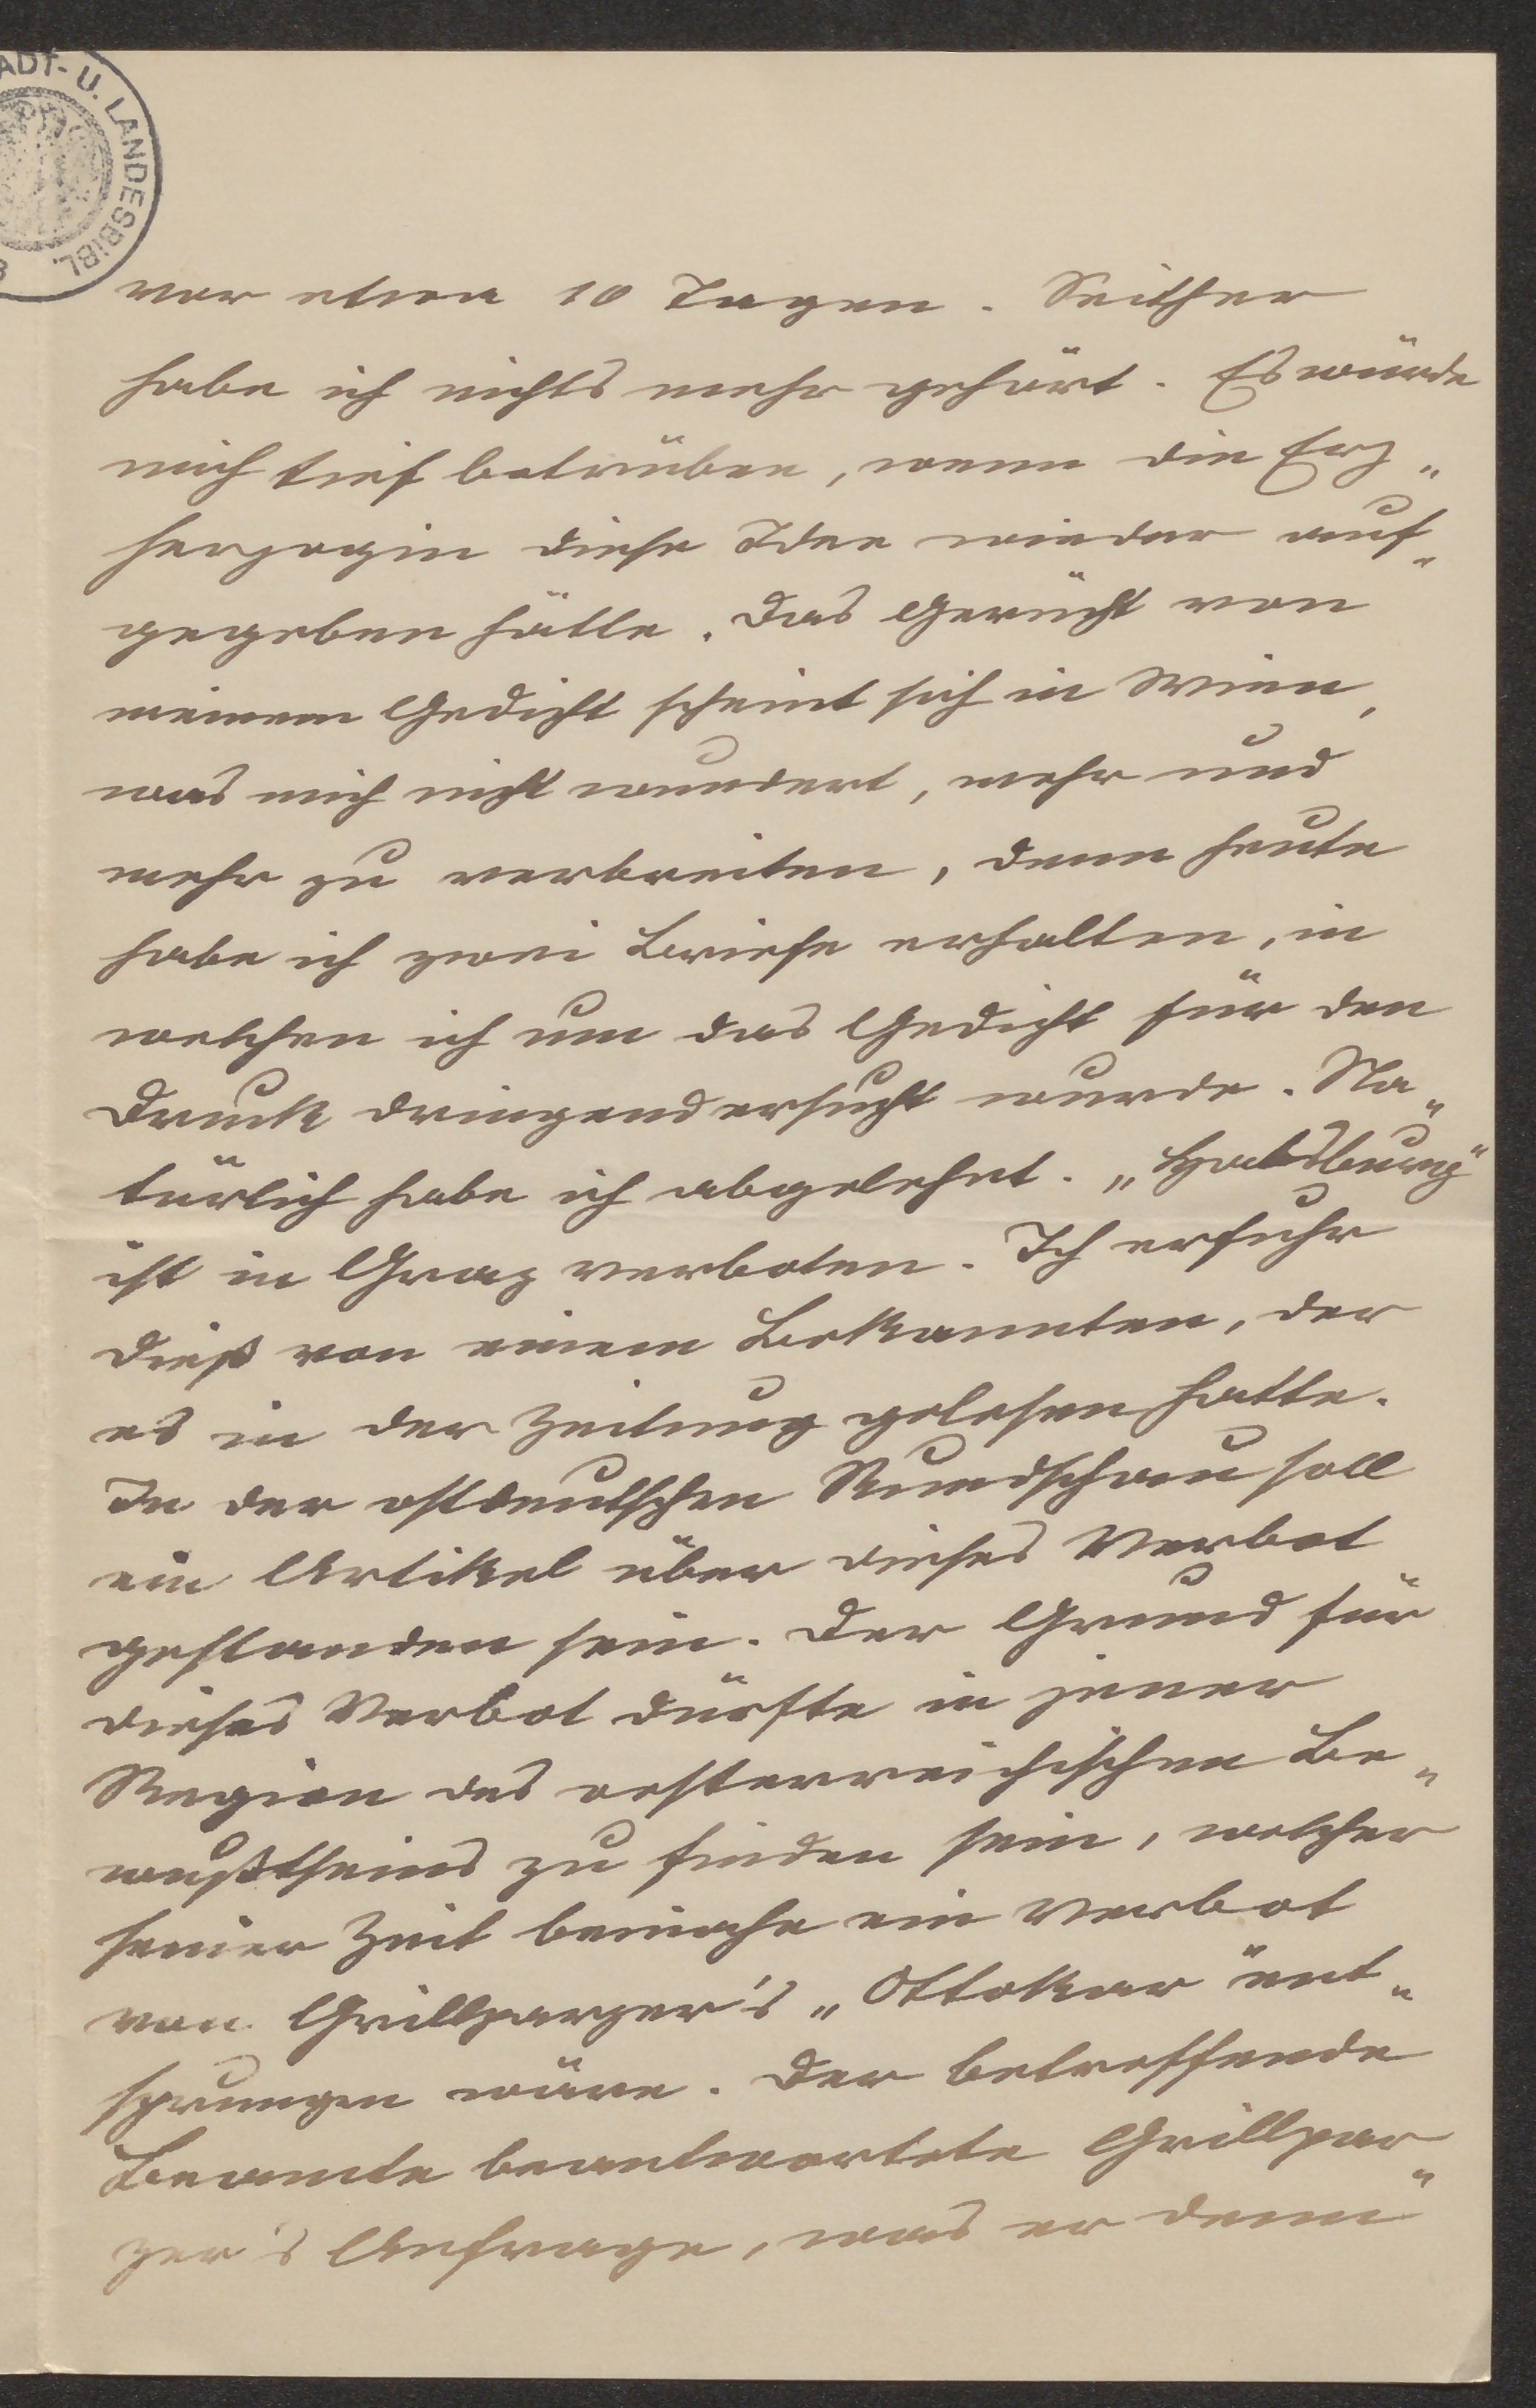 ADT- U. LANDESBIBL.
vor etwa 10 Tagen. Seither
habe ich nichts mehr gehört. Es würde
mich tief betrüben, wenn die Erz„
herzogin diese Idee wieder auf„
gegeben hätte. Das Gerücht von
meinem Gedicht scheint sich in Wien,
was mich nicht wundert, mehr und
mehr zu verbreiten, denn heute
habe ich zwei Briefe erhalten, in
welchen ich um das Gedicht für den
Druck dringend ersucht wurde. Na„
türlich habe ich abgelehnt. „Habsburg"
ist in Graz verboten. Ich erfuhr
dieß von einem Bekannten, der
es in der Zeitung gelesen hatte.
In der ostdeutschen Rundschau soll
ein Artikel über dieses Verbot
gestanden sein. Der Grund für
dieses Verbot dürfte in jener
Region des oesterreichischen Be„
wußtseins zu finden sein, welcher
seiner Zeit beinahe ein Verbot
von Grillparzer's „Ottokar" ent„
sprungen wäre. Der betreffende
Beamte beantwortete Grillpar„
zer's Anfrage, was er denn